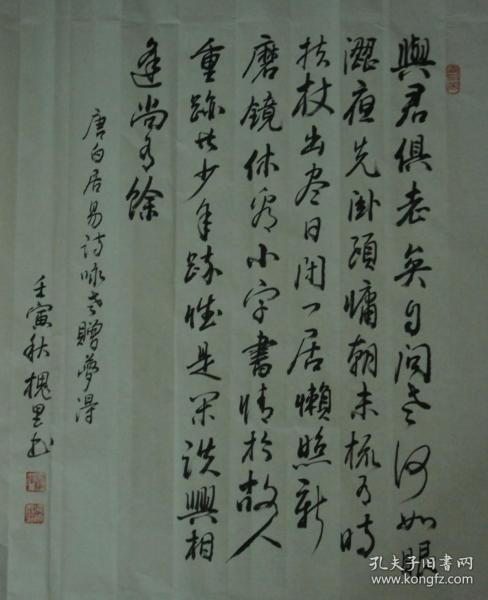 與君俱老矣自問老何如眼
澀夜先卧頭慵朝未梳有時
扶杖出盡日閉門居懶照新
磨鏡休看小字書情於故人
重跡共少年疏惟是閑談興相
逢尚有餘
唐白居易詩咏老贈夢得
壬寅秋槐里
孔夫子旧书网
www.kongfz.com